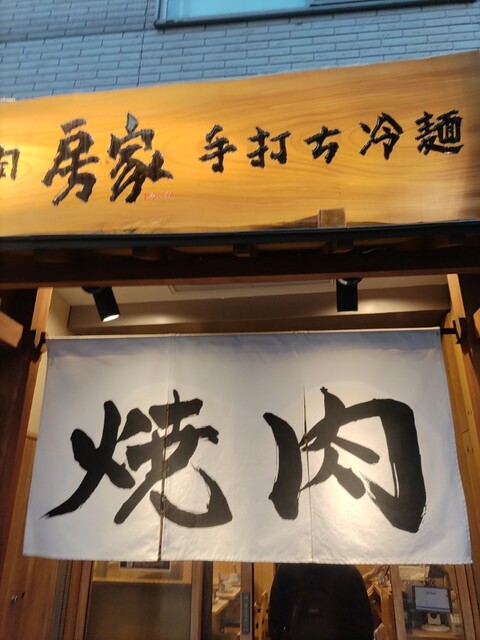 房家 手打古冷麺
焼肉